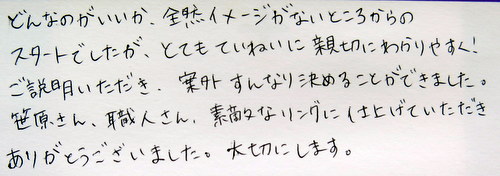 どんなのがいいか、全然イメージがないところからの
スタートでしたが、とてもていねいに親切にわかりやすく!
ご説明いただき、案外すんなり決めることができました。
笹原さん、職人さん、素敵なリングに仕上げていただき
ありがとうございました。大切にします。